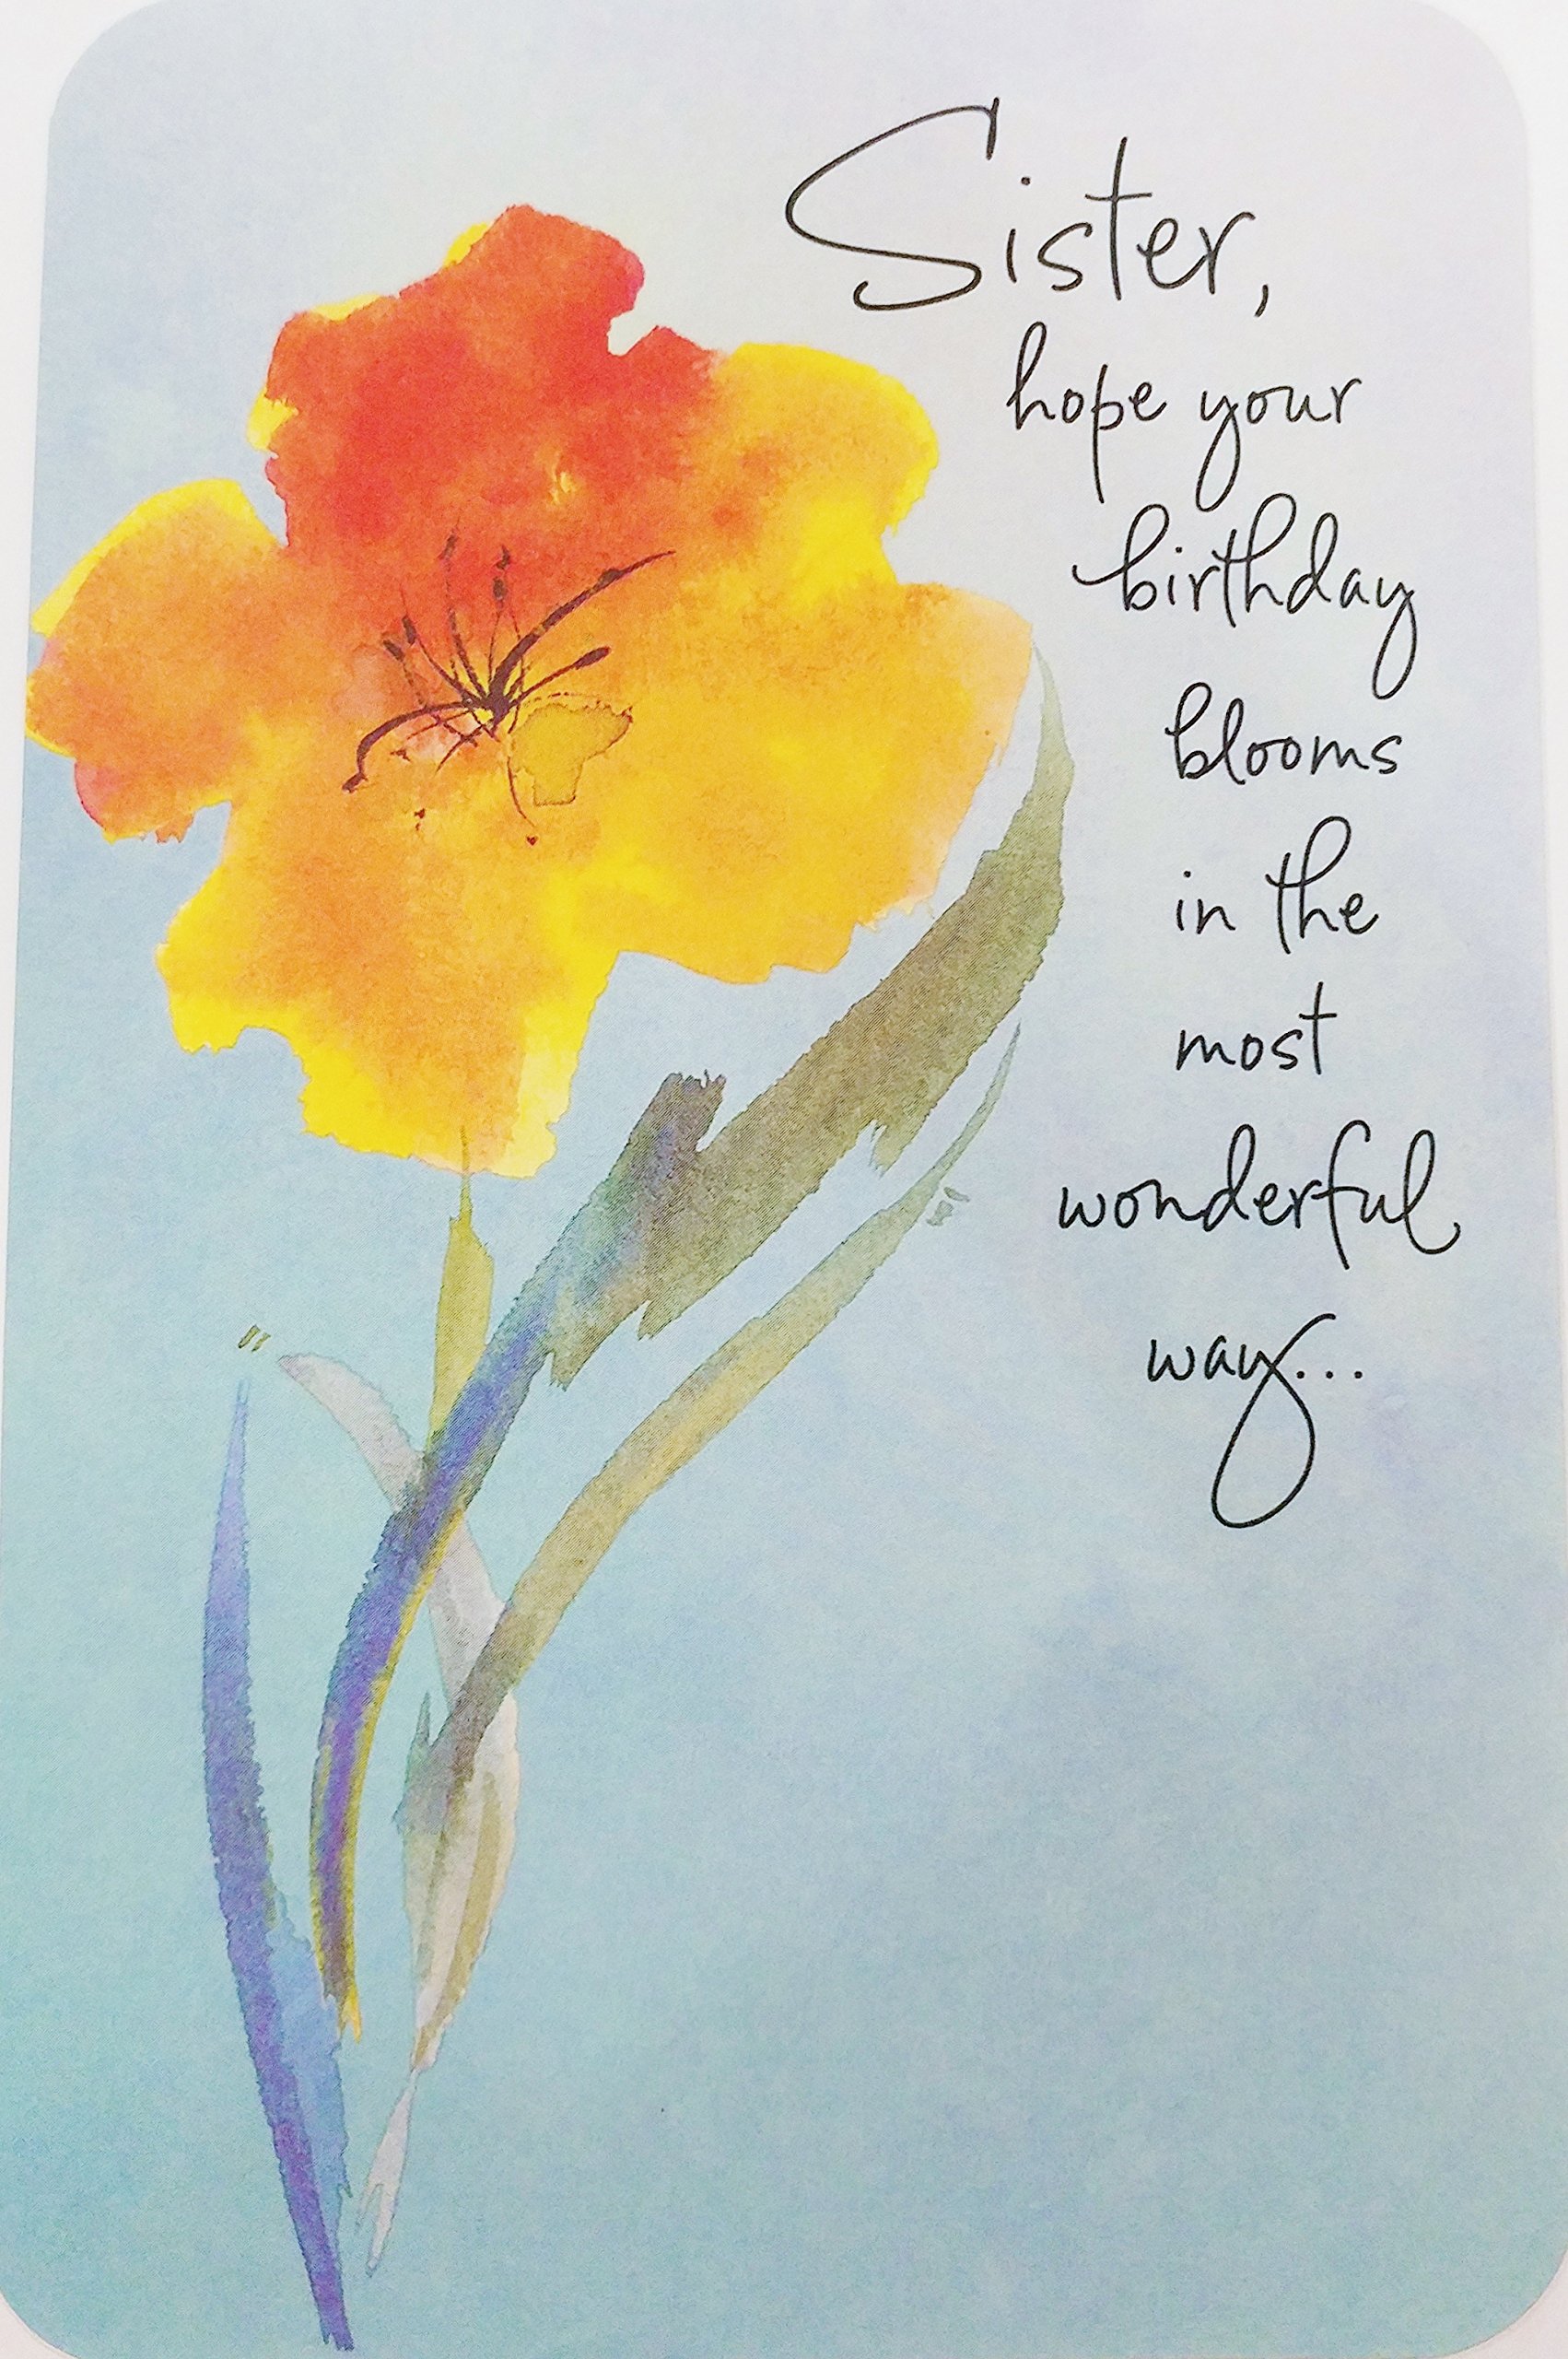 Sister,
hope your
birthday
blooms
in the
most
wonderful
way...